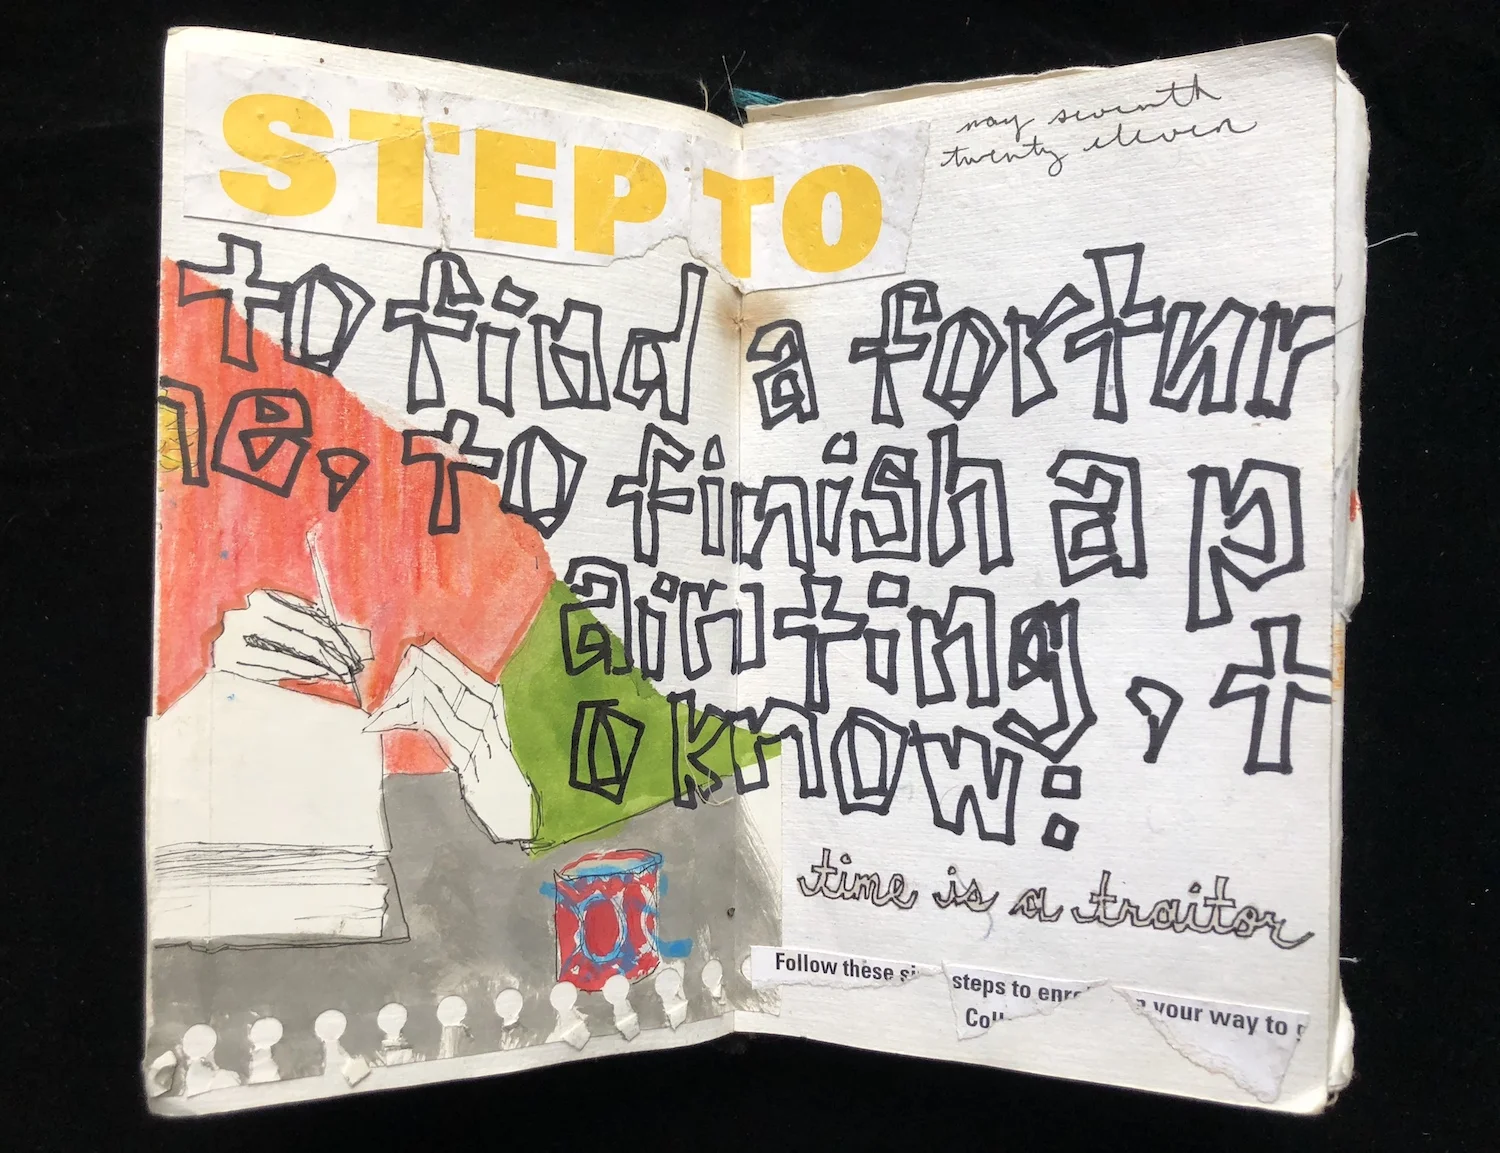 STEP TO
may seventh
twenty eleven
to find a fortur
ne, to finish a p
ainting, t
o know:
time is a traitor
Follow these steps to your way to